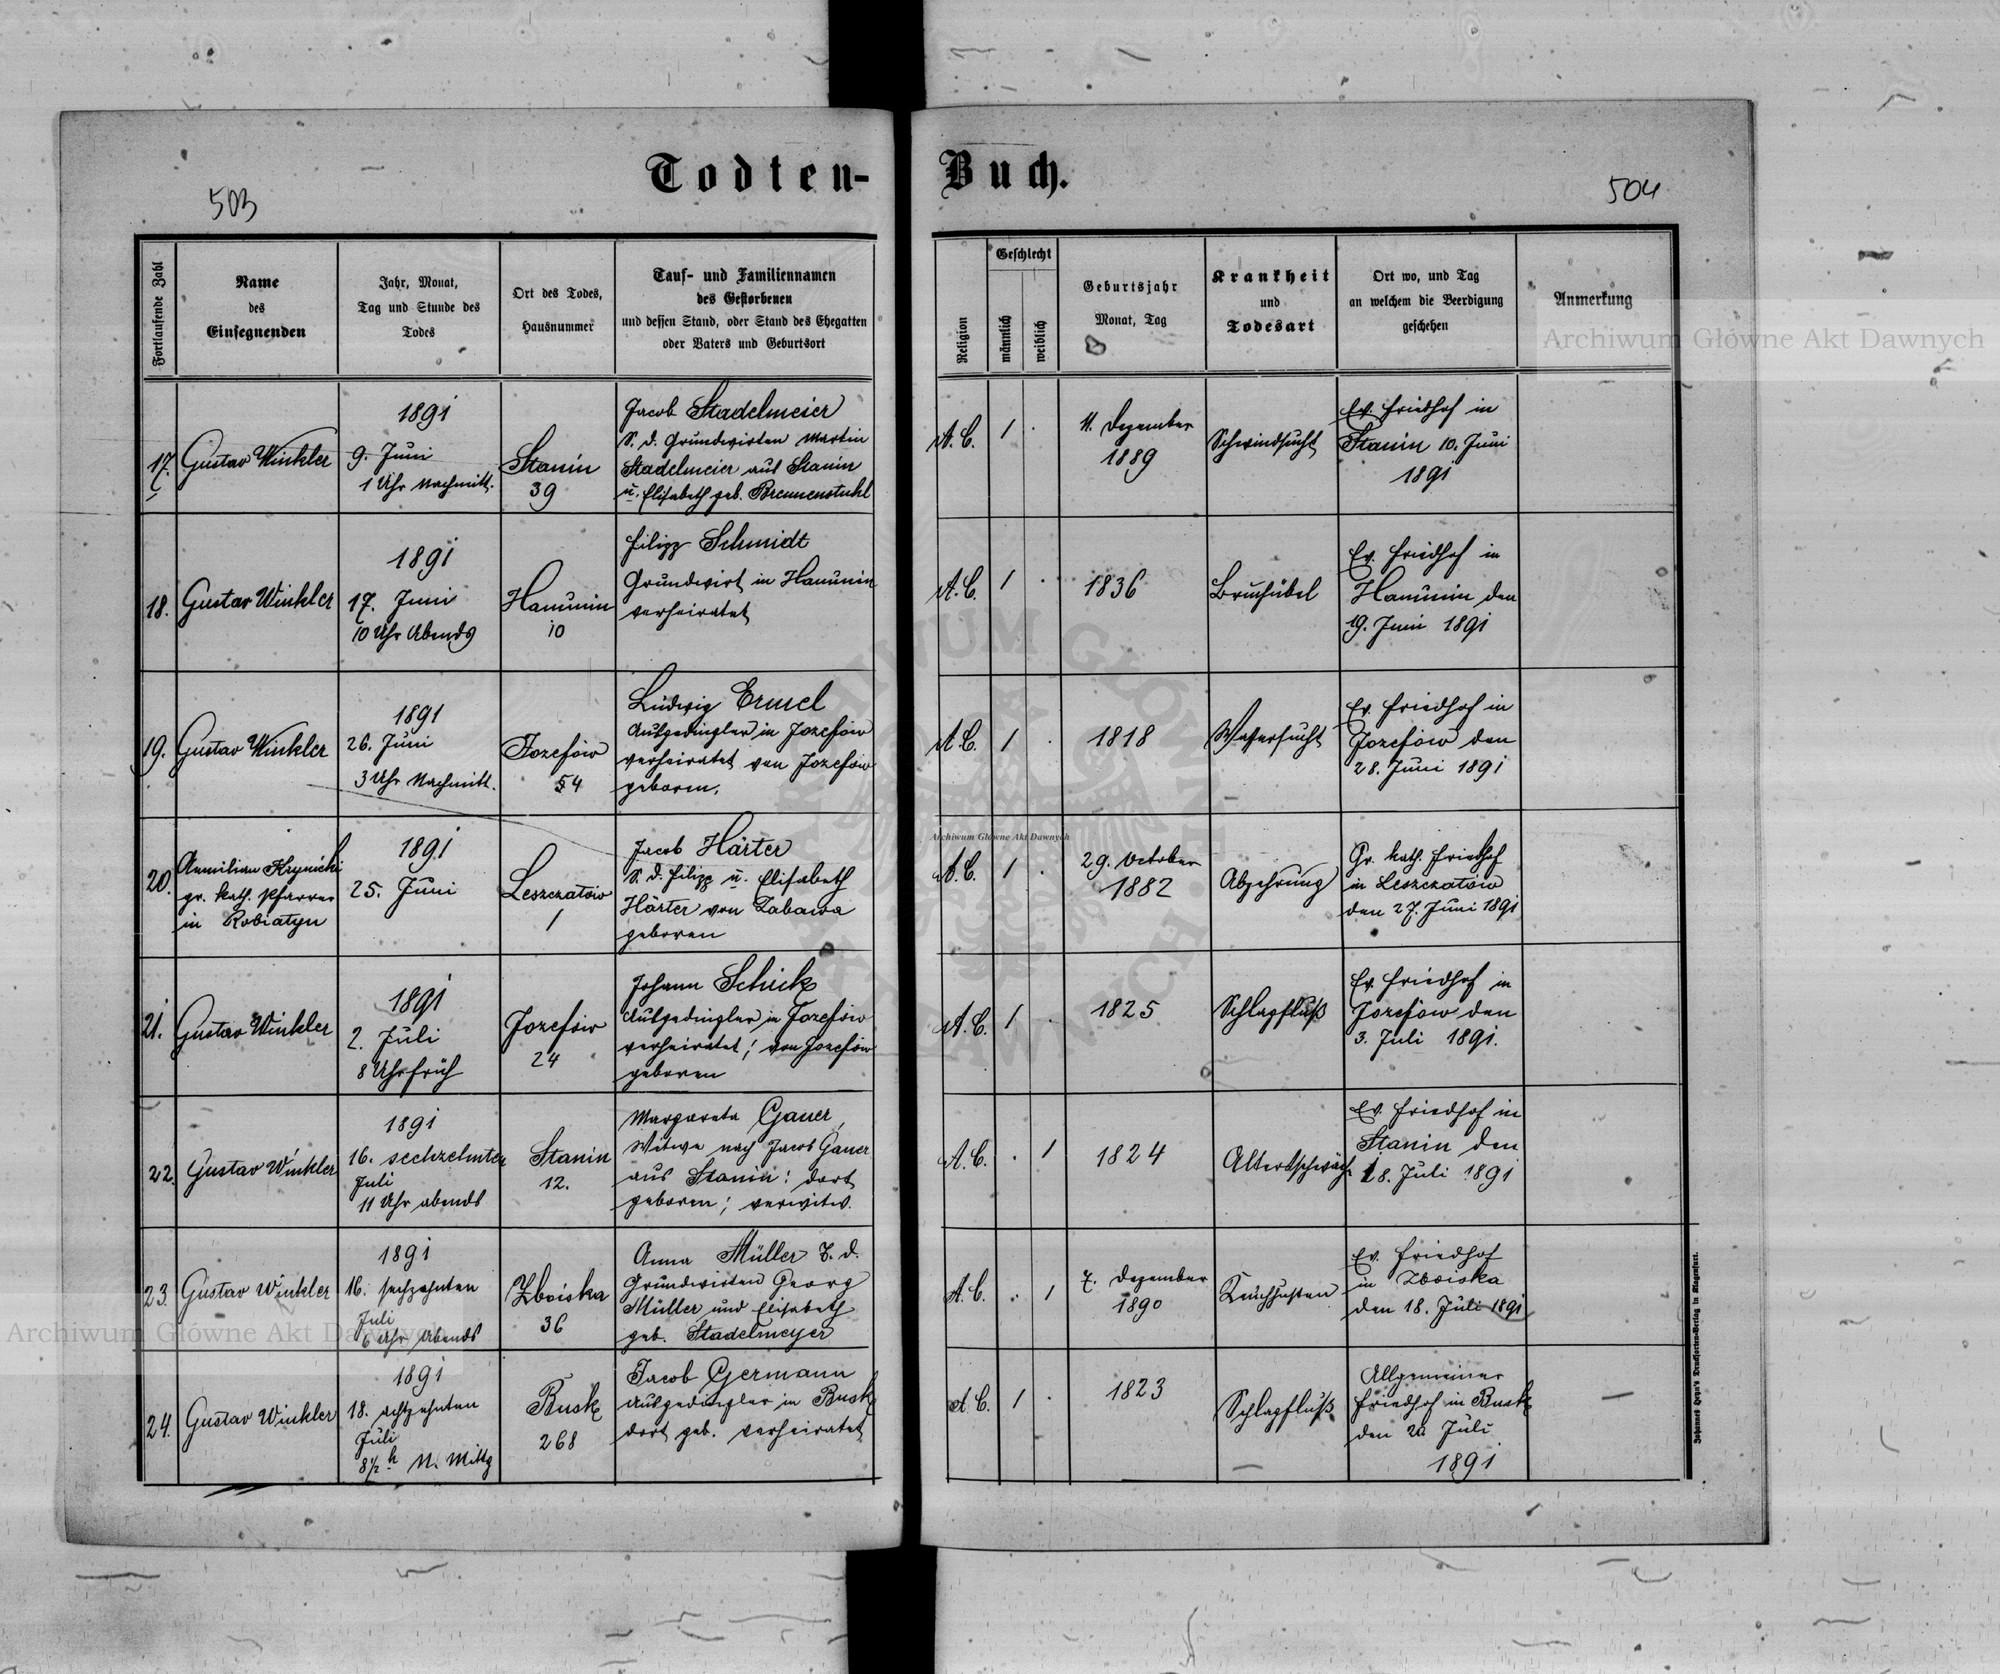 Todten-
503
Fortlaufende Zahl
Name
des
Einsegnenden
Jahr, Monat,
Tag und Stunde des
Todes
Ort des Todes,
Hausnummer
Tauf- und Familiennamen
des Gestorbenen
und dessen Stand, oder Stand des Ehegatten
oder Vaters und Geburtsort
17.
Gustav Winkler
1891
9. Juni
1 Uhr Nachmitt.
Stanin
39
Jacob Stadelmeier
S. d. Grundwirten Martin
Stadelmeier aus Stanin
u. Elisabeth geb. Brennenstuhl
18.
Gustav Winkler
1891
17. Juni
10 Uhr Abends
Hanunin
10
Filipp Schmidt
Grundwirt in Hanunin
verheiratet
19.
Gustav Winkler
1891
26. Juni
3 Uhr Nachmitt.
Jozefow
54
Ludwig Ermel
Ausgedingler in Jozefow
verheiratet von Jozefow
geboren.
20.
Aemilian Krynicki
gr. kath. Pfarrer
in Robiatyn
1891
25. Juni
Leszczatow
1
Jacob Härter
S. d. Filipp u. Elisabeth
Härter von Zabawa
geboren
21.
Gustav Winkler
1891
2. Juli
8 Uhr früh
Jozefow
24
Johann Schick
Ausgedingler in Jozefow
verheiratet; von Jozefow
geboren
22.
Gustav Winkler
1891
16. sechzehnten
Juli
11 Uhr abends
Stanin
12.
Margareta Gauer,
Witwe nach Jacob Gauer
aus Stanin: dort
geboren; verwitw.
23.
Gustav Winkler
1891
16. sechzehnten
Juli
6 Uhr Abends
Zboiska
36
Anna Müller T. d.
Grundwirten Georg
Müller und Elisabeth
geb. Stadelmeyer
24.
Gustav Winkler
1891
18. achtzehnten
Juli
8½ h N. Mittg
Busk
268
Jacob Germann
Ausgedingler in Busk
dort geb. verheiratet
Buch.
504
Religion
Geschlecht
männlich
weiblich
Geburtsjahr
Monat, Tag
Krankheit
und
Todesart
Ort wo, und Tag
an welchem die Beerdigung
geschehen
Anmerkung
A. C.
1
.
11. Dezember
1889
Schwindsucht
Ev. Friedhof in
Stanin 10. Juni
1891
A. C.
1
.
1836
Bruchübel
Ev. Friedhof in
Hanunin den
19. Juni 1891
A. C.
1
.
1818
Wassersucht
Ev. Friedhof in
Jozefow den
28. Juni 1891
A. C.
1
.
29. October
1882
Abzehrung
Gr. kath. Friedhof
in Leszczatow
den 27. Juni 1891
A. C.
1
.
1825
Schlagfluß
Ev. Friedhof in
Jozefow den
3. Juli 1891.
A. C.
.
1
1824
Altersschwäche
Ev. Friedhof in
Stanin den
18. Juli 1891
A. C.
.
1
7. Dezember
1890
Keuchhusten
Ev. Friedhof
in Zboiska
den 18. Juli 1891
A. C.
1
.
1823
Schlagfluß
Allgemeiner
Friedhof in Busk
den 20. Juli
1891
—
Johannes Heyn's Drucksorten-Verlag in Klagenfurt.
Archiwum Główne Akt Dawnych
Archiwum Główne Akt Dawnych
Archiwum Główne Akt Dawnych